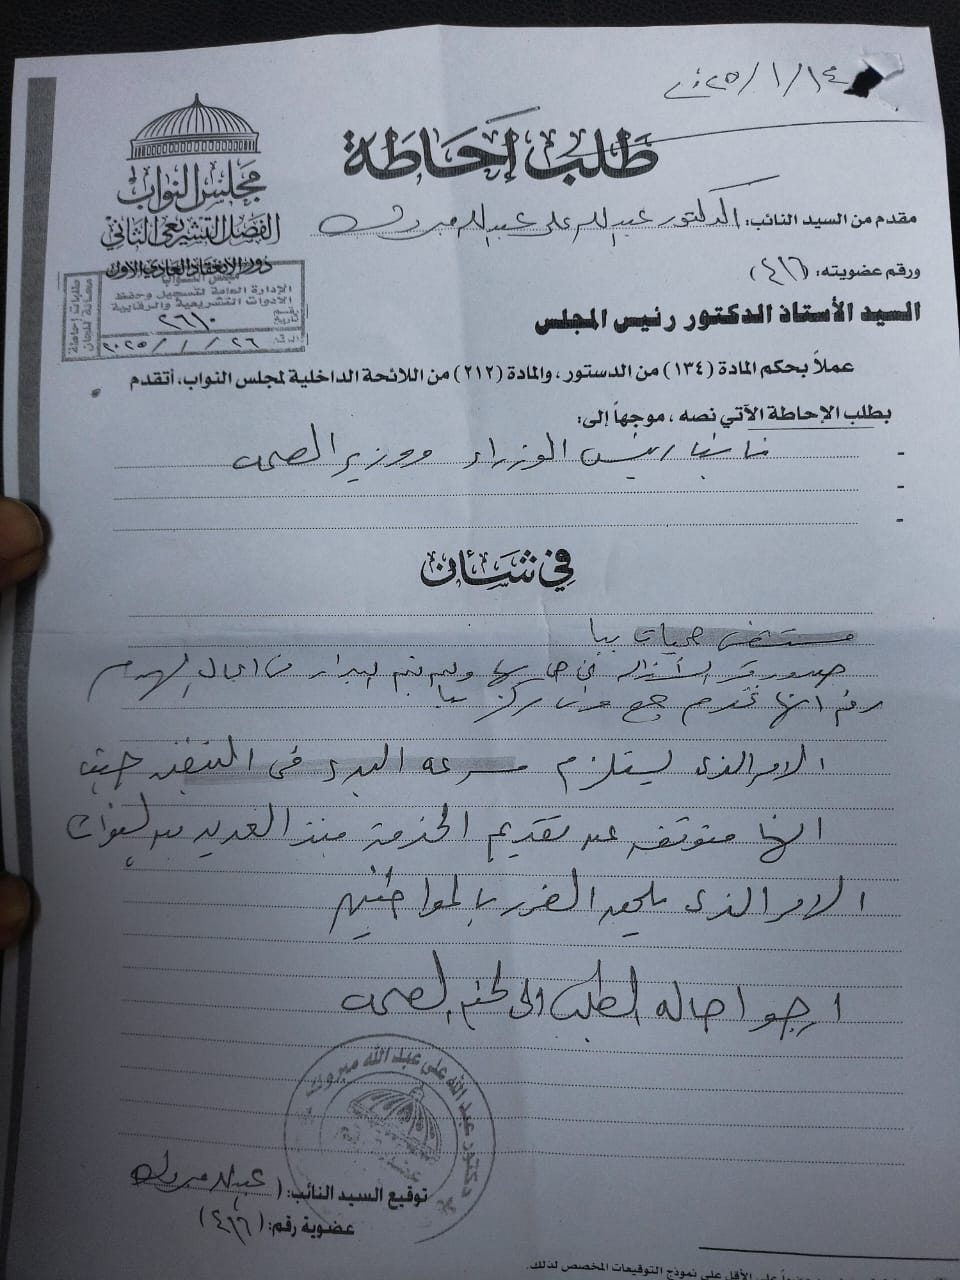 ٢٠٢٥/١/١٤
طلب إحاطة
مجلس النواب
الفصل التشريعى الثانى
دور الانعقاد العادى الأول
مجلس النواب
الإدارة العامة لتسجيل وحفظ
الأدوات التشريعية والرقابية
٢٠٢٥/١/٢٦
طلبات إحاطة
محالة للجان
مقدم من السيد النائب: الدكتور عبدالله على عبدالله مبروك
ورقم عضويته: (٤١٦)
السيد الأستاذ الدكتور رئيس المجلس
عملاً بحكم المادة (١٣٤) من الدستور، والمادة (٢١٢) من اللائحة الداخلية لمجلس النواب، أتقدم
بطلب الإحاطة الآتي نصه، موجهاً إلى:
- رئيس الوزراء ووزير الصحه
-
-
في شأن
مستشفى حميات ببا
صدور قرار ازاله
رغم انها تخدم جميع مركز ببا
الامر الذى يستلزم سرعه البدء فى التنفيذ حيث
انها متوقفه عن تقديم الخدمة منذ العديد من السنوات
الامر الذى يلحق الضرر بالمواطنين
ارجو احاله الطلب الى لجنه الصحه
دكتور عبد الله على عبد الله مبروك
توقيع السيد النائب: (عبدالله مبروك
عضوية رقم: (٤١٦)
على الأقل على نموذج التوقيعات المخصص لذلك.